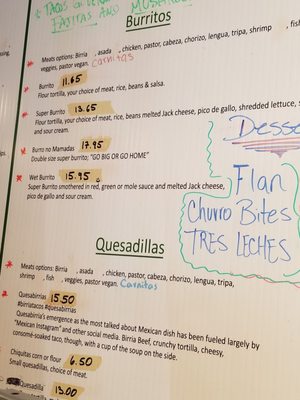 TACOS
FAJITAS AND
Burritos
Meats options: Birria , asada , chicken, pastor, cabeza, chorizo, lengua, tripa, shrimp , fish
veggies, pastor vegan. Carnitas
Burrito 11.65
Flour tortilla, your choice of meat, rice, beans & salsa.
Super Burrito 13.65
Flour tortilla, your choice of meat, rice, beans melted Jack cheese, pico de gallo, shredded lettuce,
and sour cream.
Burro no Mamadas 17.95
Double size super burrito; "GO BIG OR GO HOME"
Wet Burrito 15.95
Super Burrito smothered in red, green or mole sauce and melted Jack cheese,
pico de gallo and sour cream.
Desse
Flan
Churro Bites
TRES LECHES
Quesadillas
Meats options: Birria , asada , chicken, pastor, cabeza, chorizo, lengua, tripa,
shrimp , fish , veggies, pastor vegan. Carnitas
Quesabirrias 15.50
#birriatacos #quesabirrias
Quesabirria's emergence as the most talked about Mexican dish has been fueled largely by
"Mexican Instagram" and other social media. Birria Beef, crunchy tortilla, cheesy,
consomé-soaked taco, though, with a cup of the soup on the side.
Chiquitas corn or flour 6.50
Small quesadillas, choice of meat.
Quesadilla 13.00